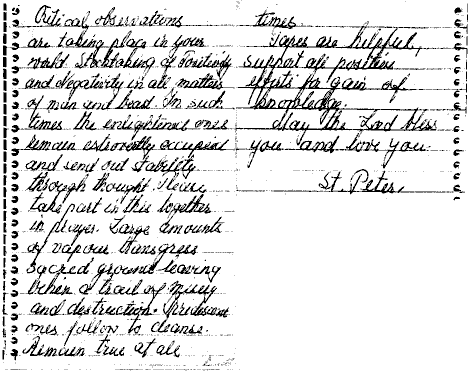 Critical observations
are taking place in your
world. Stocktaking of Positivity
and Negativity in all matters
of man and beast. In such
times the enlightened ones
remain astrovertly occupied
and send out stability
through thought. Please
take part in this together
in prayer. Large amounts
of vapour transgress
sacred grounds leaving
behin a trail of misery
and destruction. Irridescent
ones follow to cleanse.
Remain true at all
times.
Tapes are helpful,
support all positive
efforts for gain of
knowledge.
May the Lord bless
you and love you.
St. Peter.